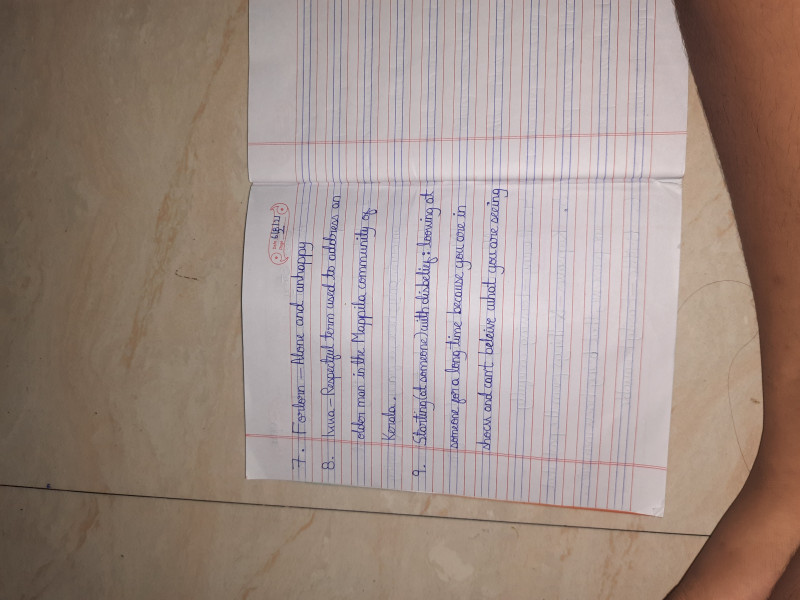 6/8/21
2
7. Forlorn — Alone and unhappy
8. Ikka - Respectful term used to address an
older man in the Mappila community of
Kerala.
9. Starting(at someone) with disbelief: looking at
someone for a long time because you are in
shock and cant beleive what you are seeing